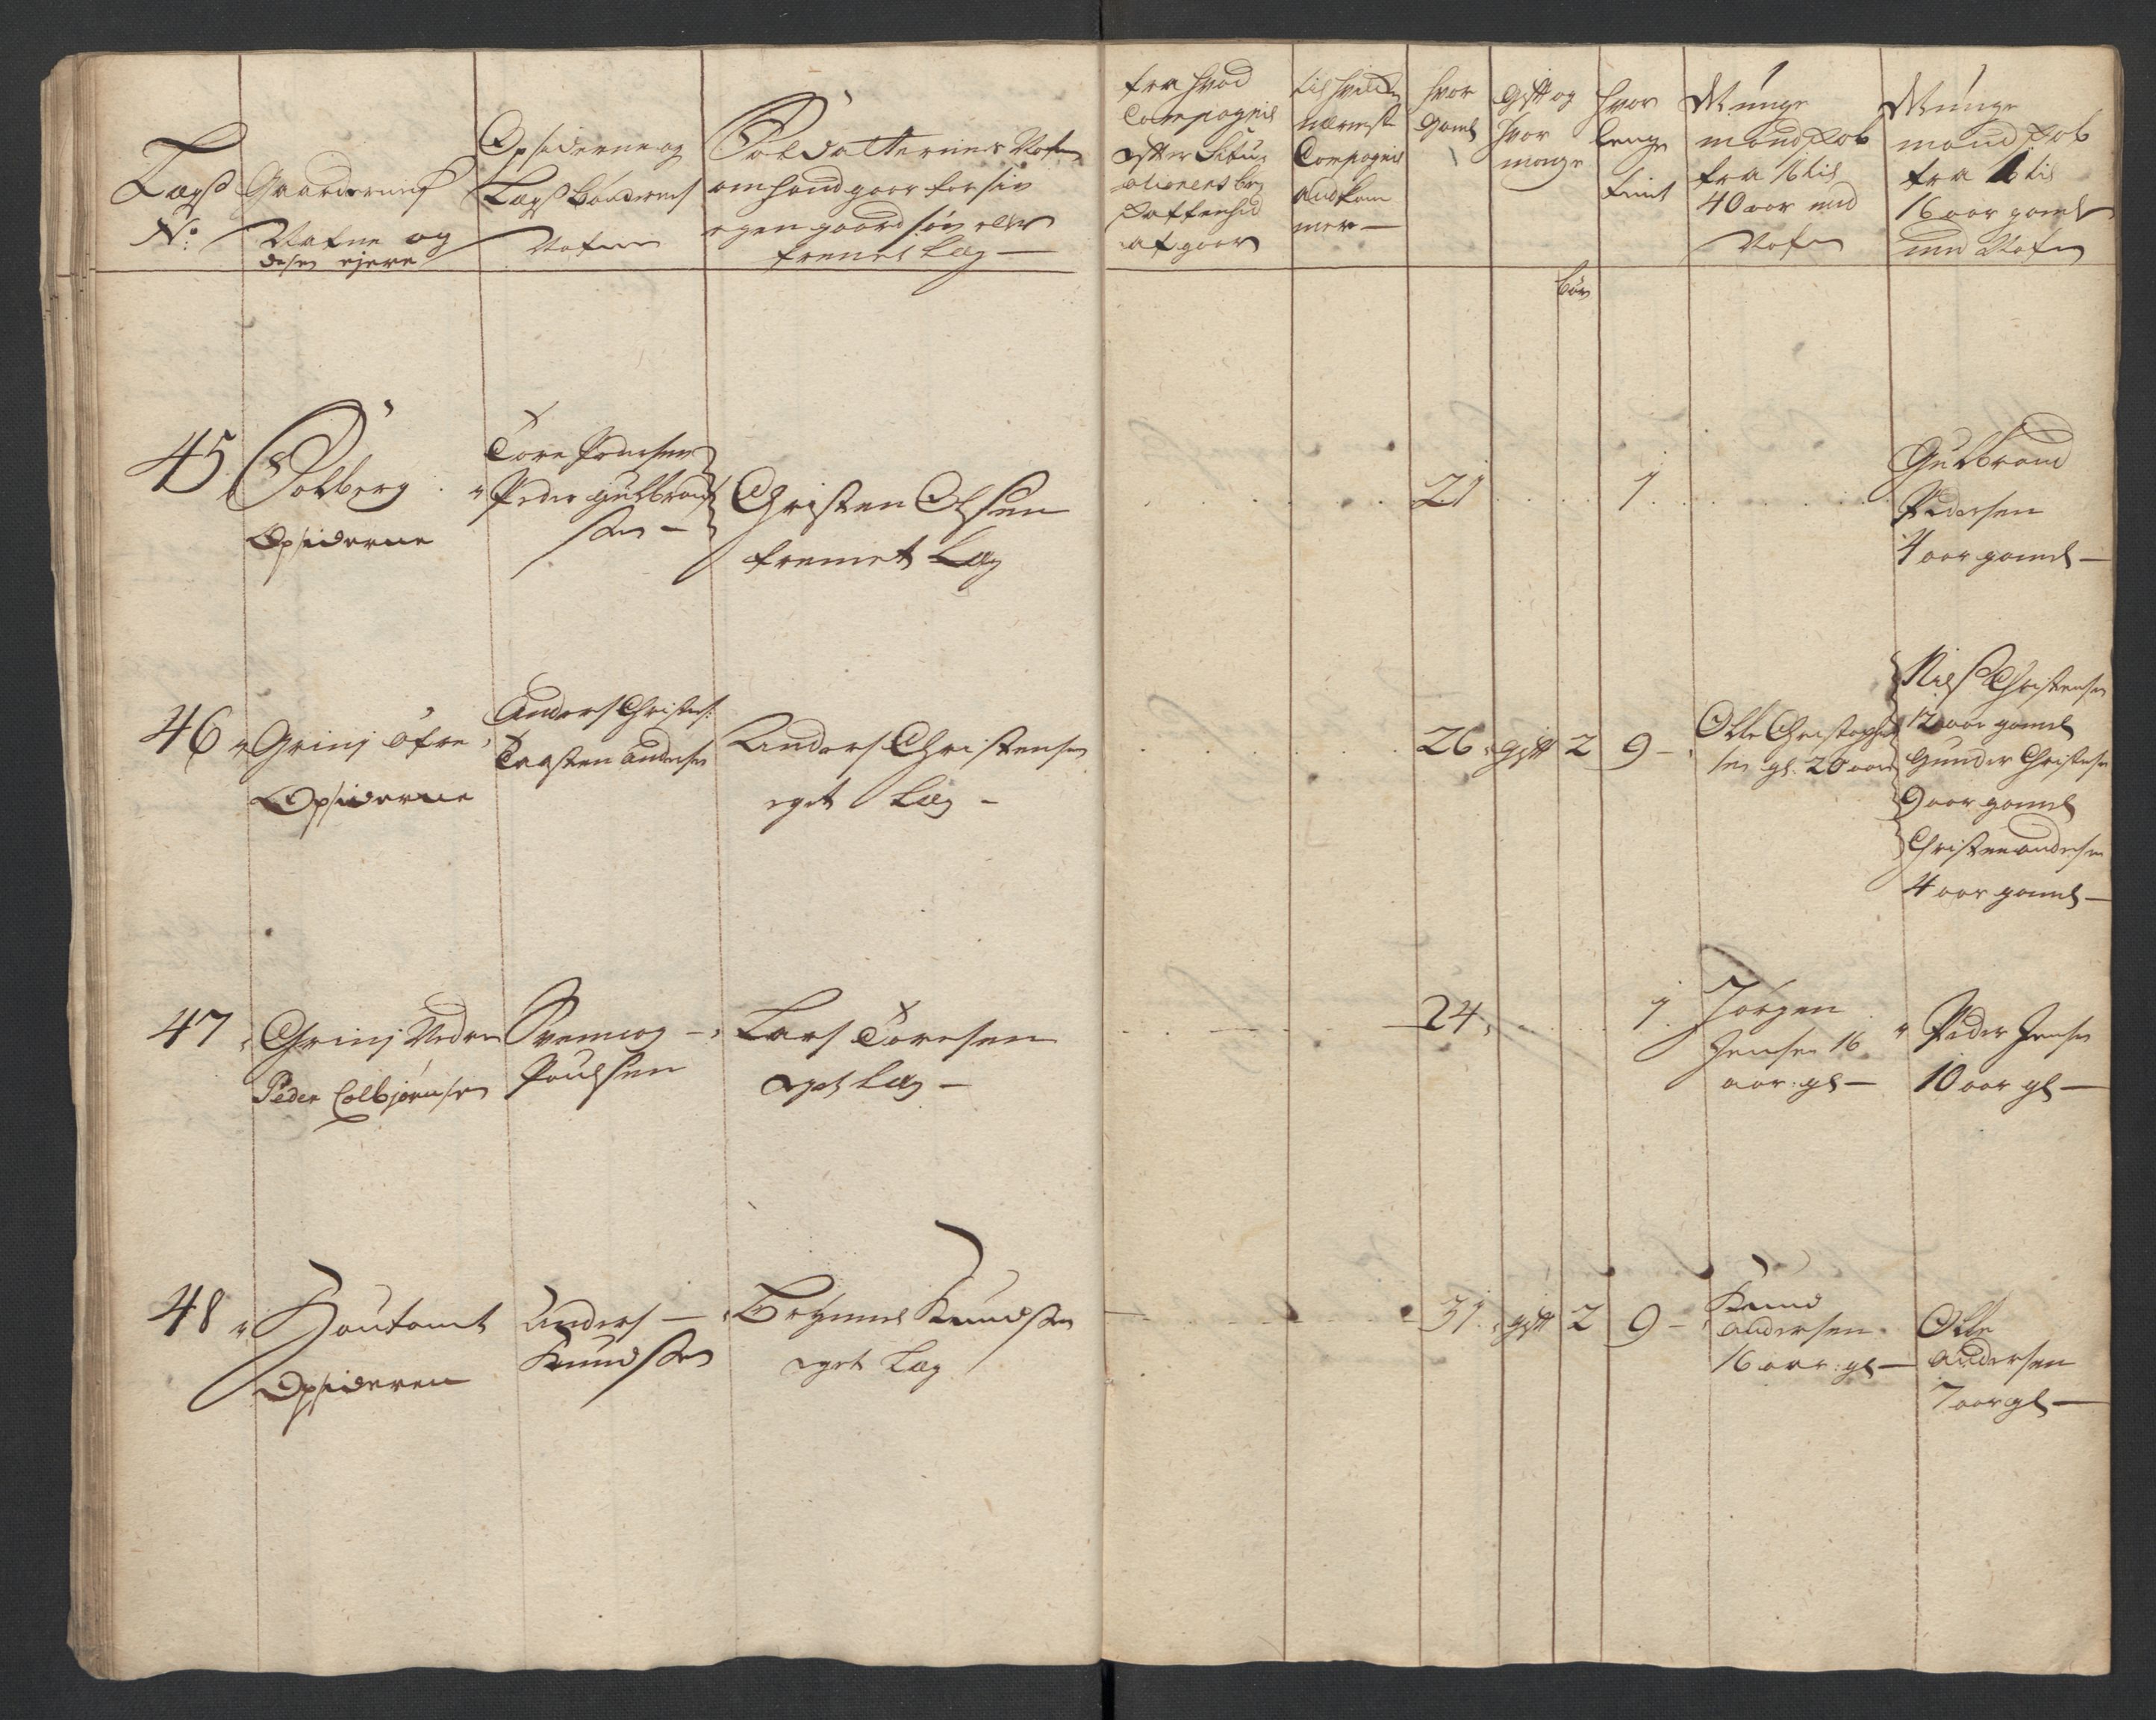 Legs
No:
Gaardernes
Nafne og
deres ejere
Opsiderne og
Legs bøndernes
Nafne
Soldatternes Nafn
om hand gaar for sin
egen gaard sin eller
fremet Leg —
fra hvad
Compagnie
efter Situ-
ationens be-
skaffenhed
afgaar
til hvilken
nermeste
Compagnie
and kom
mer —
hvor
gaml
gift og
hvor
mange
børn
hvor
lenge
tient
Unge
mandskab
fra 16 til
40 aar med
Nafn
Unge
mandskab
fra 1 til
16 aar gaml
med Nafn
45
Solberg
Opsiderne
Tore Poversen
Peder gulbrand
sen —
Christen Olsen
fremet Leg
21
1
Gulbrand
Pedersen
4 aar gamel —
46
Grinj øfre
Opsiderne
Anders Christens:
Torsten Andersen
Anders Christensen
eget Leg —
26
gift
2
9 —
Olle Christophers
sen gl. 20 aar
Niels Christensen
12 aar gamel
Gunder Christens
9 aar gamel
Christen andersen
4 aar gamel —
47
Grinj Nedre
Peder Colbjørnsen
Svennig —
Poulsen
Lars Toresen
eget Leg —
24
1
Jørgen
Jensen 16
aar: gl —
Peder Jensen
10 aar gl —
48
Houtomt
Opsideren
Anders —
Knudsen
Brynnel Knudsen
eget Leg
31
gift
2
9 —
Knud
andersen
16 aar: gl —
Olle
andersen
7 aar gl —